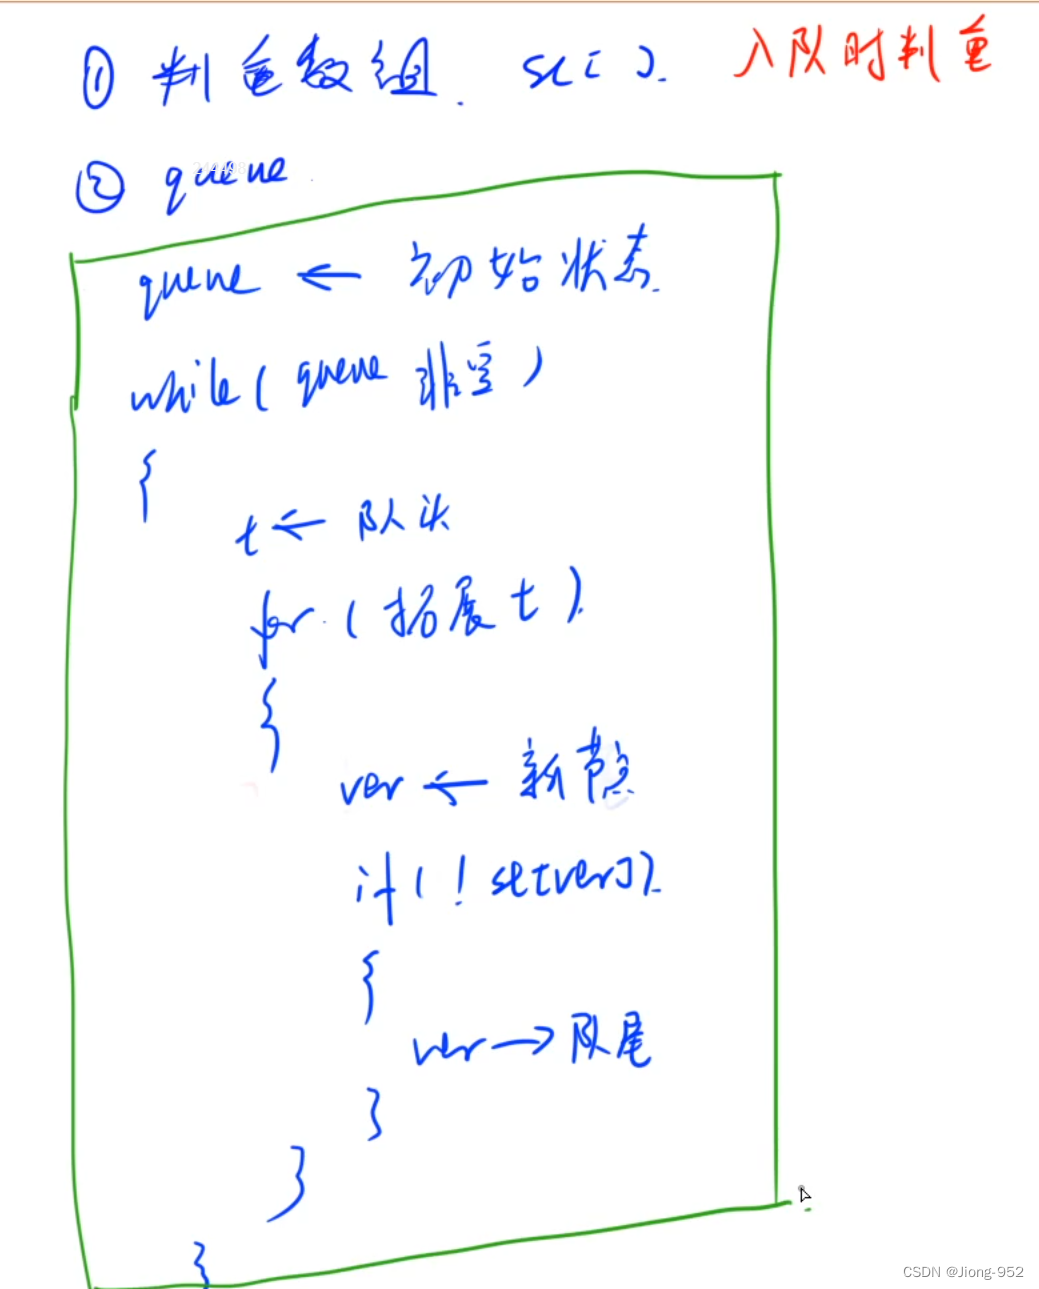 ① 判重数组. st[]. 入队时判重
② queue
queue ← 初始状态.
while(queue 非空)
{
t ← 队头
for.(拓展 t)
{
ver ← 新节点
if(!st[ver]).
{
ver → 队尾
}
}
}
CSDN @Jiong-952